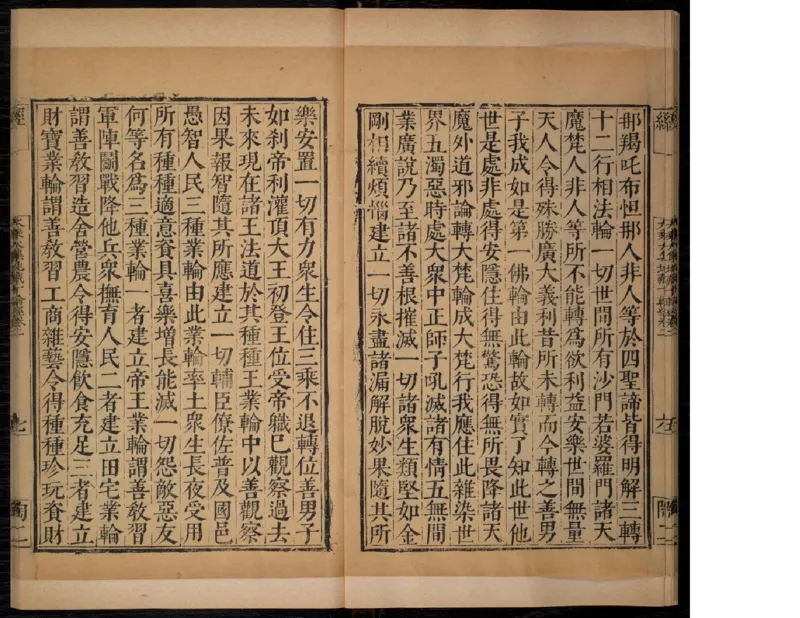 那羯吒布怛那人非人等於四聖諦皆得明解三轉
十二行相法輪一切世間所有沙門若婆羅門諸天
魔梵人非人等所不能轉為欲利益安樂世間無量
天人令得殊勝廣大義利昔所未轉而今轉之善男
子我成如是第一佛輪由此輪故如實了知此世他
世是處非處得安隱住得無驚恐得無所畏降諸天
魔外道邪論轉大梵輪成大梵行我應住此雜染世
界五濁惡時處大衆中正師子吼滅諸有情五無間
業廣說乃至諸不善根摧滅一切諸衆生類堅如金
剛相續煩惱建立一切永盡諸漏解脫妙果隨其所
樂安置一切有力衆生令住三乘不退轉位善男子
如刹帝利灌頂大王初登王位受帝職已觀察過去
未來現在諸王法道於其種種王業輪中以善觀察
因果報智隨其所應建立一切輔臣僚佐普及國邑
愚智人民三種業輪由此業輪率土衆生長夜受用
所有種種適意資具喜樂增長能滅一切怨敵惡友
何等名爲三種業輪一者建立帝王業輪謂善敎習
軍陣鬪戰降他兵衆撫有人民二者建立田宅業輪
謂善敎習造舍營農令得安隱飲食充足三者建立
財寶業輪謂善敎習工商雜藝令得種種珍玩資財